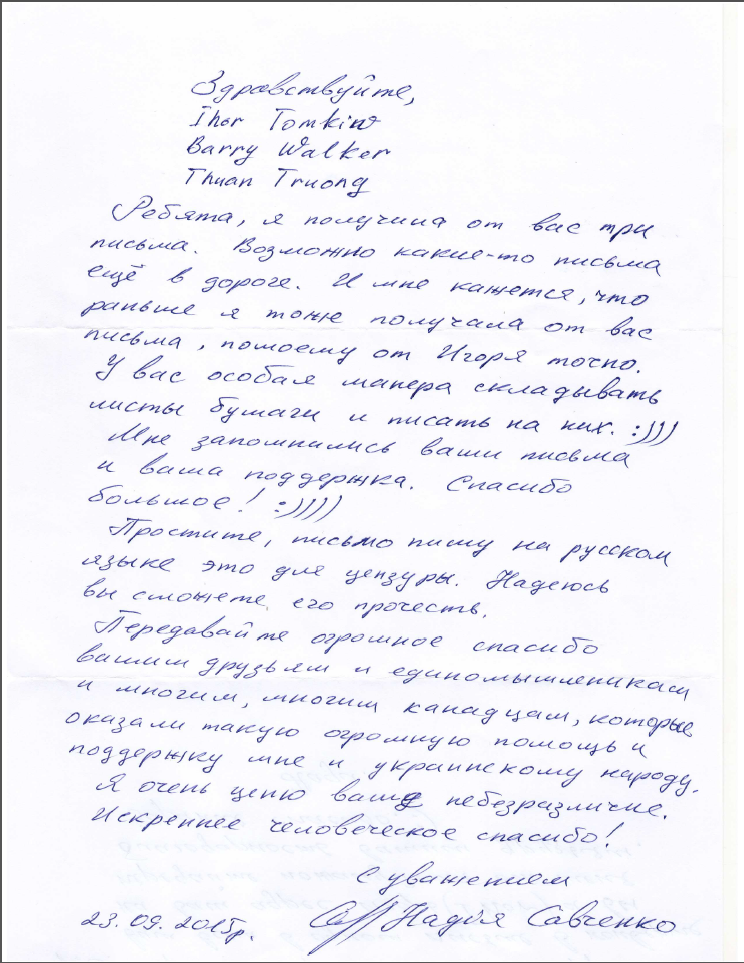 Здравствуйте,
Ihor Tomkiw
Barry Walker
Thuan Truong
Ребята, я получила от вас три
письма. Возможно какие-то письма
ещё в дороге. И мне кажется, что
раньше я тоже получала от вас
письма, помоему от Игоря точно.
У вас особая манера складывать
листы бумаги и писать на них. :)))
Мне запомнились ваши письма
и ваша поддержка. Спасибо
большое! :))))
Простите, письмо пишу на русском
языке это для цензуры. Надеюсь
вы сможете его прочесть.
Передавайте огромное спасибо
вашим друзьям и единомышленикам
и многим, многим канадцам, которые
оказали такую огромную помощь и
поддержку мне и украинскому народу.
Я очень ценю ваше небезразличие.
Искреннее человеческое спасибо!
С уважением
23.09.2015г. Надія Савченко